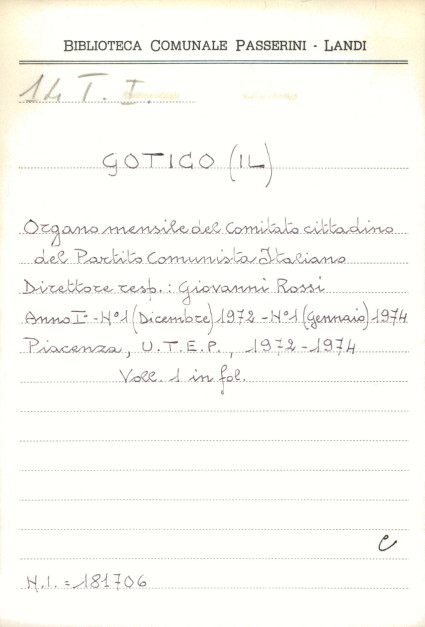 BIBLIOTECA COMUNALE PASSERINI - LANDI
14 T. I.
GOTICO (IL)
Organo mensile del Comitato cittadino
del Partito Comunista Italiano
Direttore resp.: Giovanni Rossi
Anno I° - N° 1 (Dicembre) 1972 - N° 1 (Gennaio) 1974
Piacenza, U.T.E.P., 1972-1974
Voll. 1 in fol.
C
N.I. = 181706